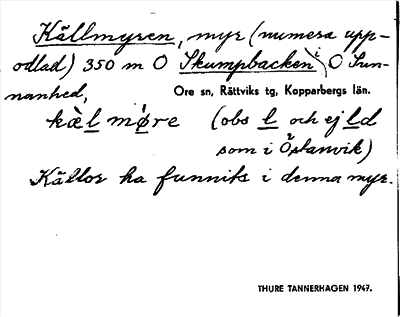 Källmyren, myr (numera upp-
odlad) 350 m O Skumpbacken i O Sun-
nanhed,
Ore sn, Rättviks tg, Kopparbergs län.
kæ̀l mø̀re (obs l och ej ld
som i Östanvik)
Källor ha funnits i denna myr.
THURE TANNERHAGEN 1947.